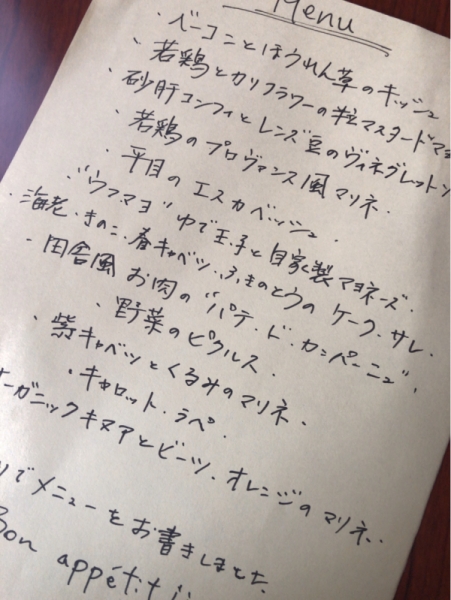 Menu
・ベーコンとほうれん草のキッシュ
・若鶏とカリフラワーの粒マスタードマヨ
・砂肝コンフィとレンズ豆のヴィネグレットソ
・若鶏のプロヴァンス風マリネ.
・平目のエスカベッシュ.
・"ウフマヨ" ゆで玉子と自家製マヨネーズ.
・海老・きのこ・春キャベツ・ふきのとうのケーク・サレ.
・田舎風お肉の"パテ・ド・カンパーニュ".
・野菜のピクルス.
・紫キャベツとくるみのマリネ.
・キャロット・ラペ.
オーガニックキヌアとビーツ、オレンジのマリネ.
でメニューをお書きしました.
Bon appétit!!